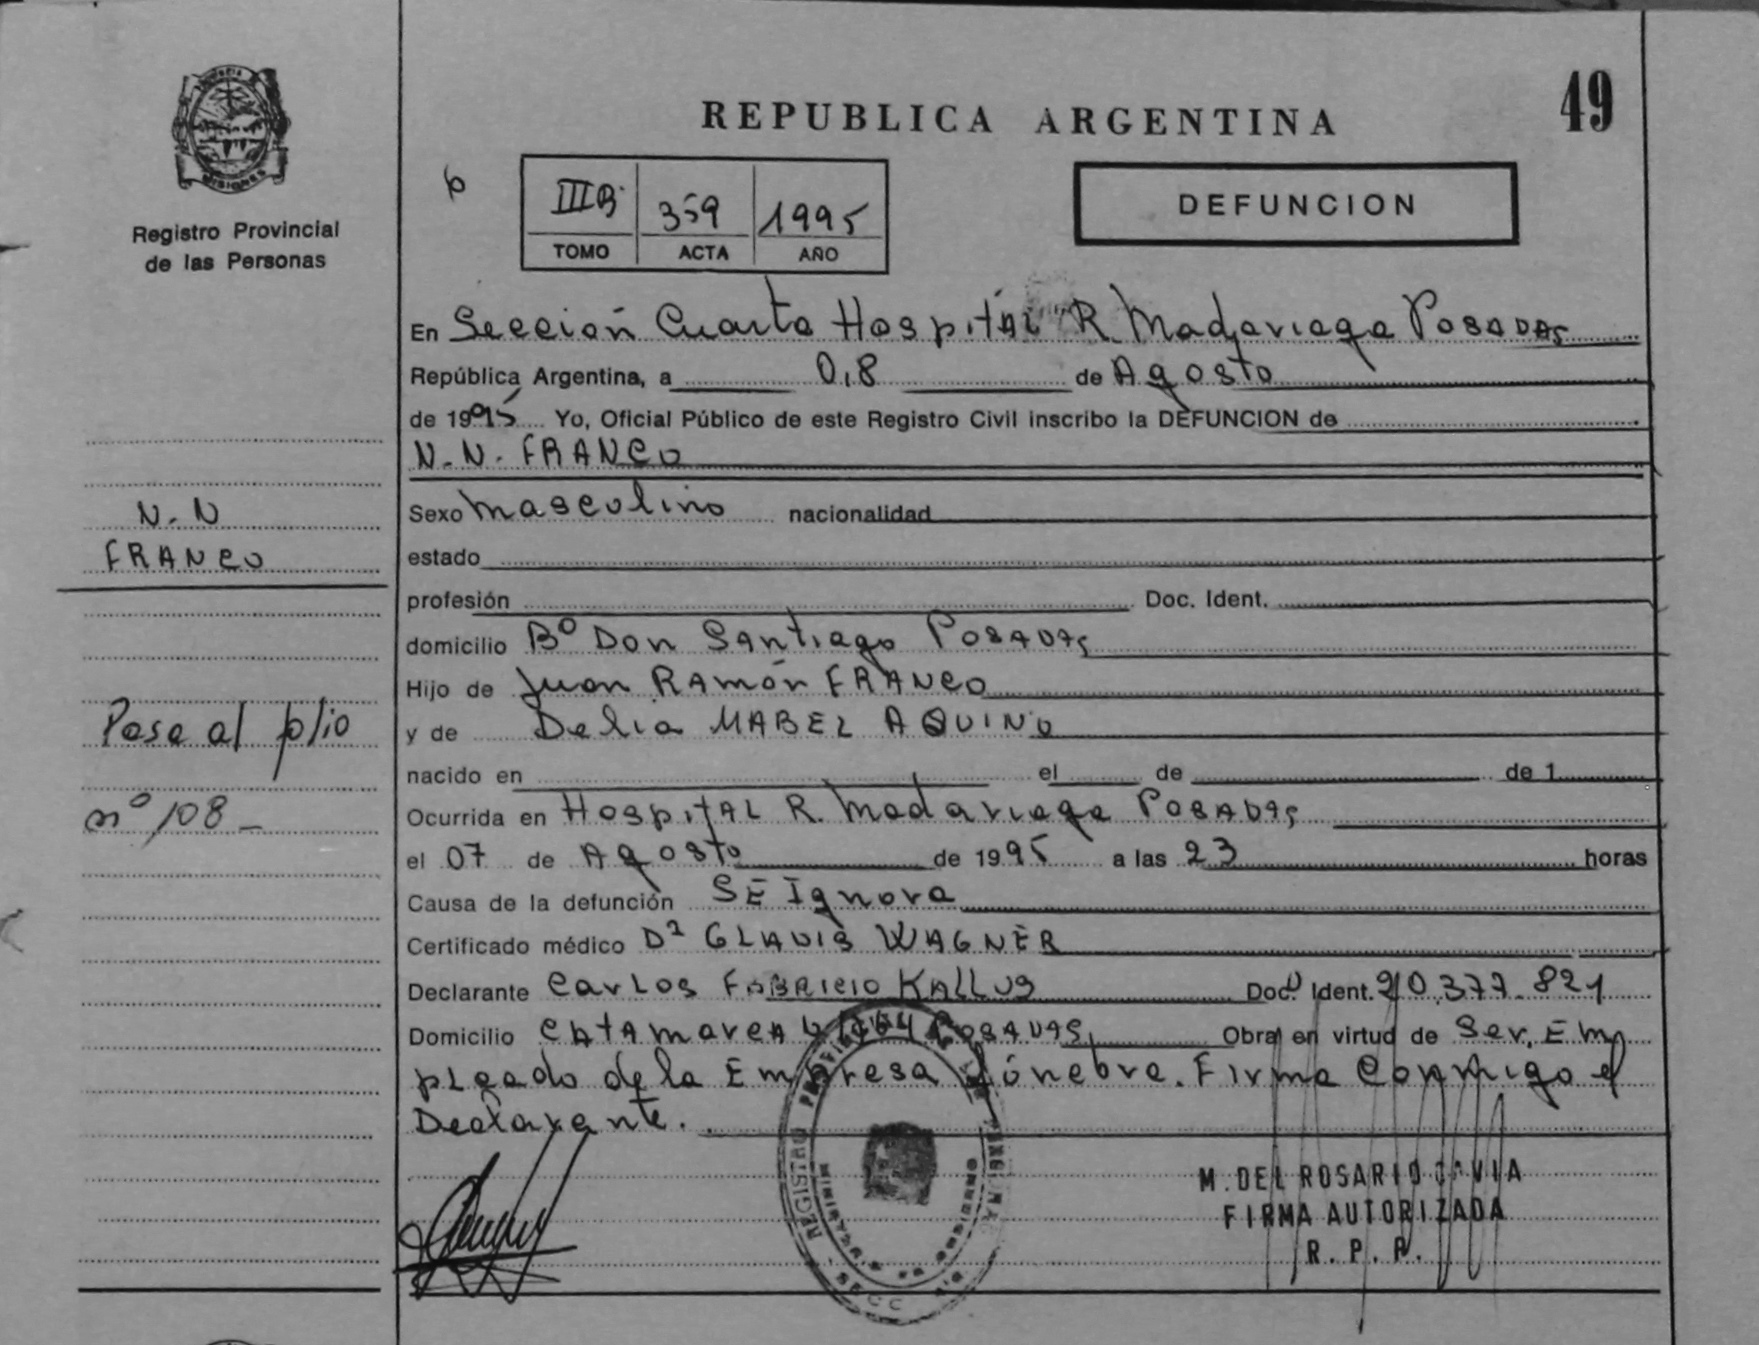 MISIONES
Registro Provincial
de las Personas
N.N
FRANCO
Pase al folio
nº 108 -
REPUBLICA ARGENTINA
49
III B. 359 1995
TOMO ACTA AÑO
DEFUNCION
En Sección Cuarta Hospital "R. Madariaga Posadas
República Argentina, a 08 de Agosto
de 1995 Yo, Oficial Público de este Registro Civil inscribo la DEFUNCION de
N.N. FRANCO
Sexo Masculino nacionalidad
estado
profesión Doc. Ident.
domicilio Bº Don Santiago Posadas
Hijo de Juan Ramón FRANCO
y de Delia MABEL AQUINO
nacido en el de de 1
Ocurrida en Hospital R. Madariaga Posadas
el 07 de Agosto de 1995 a las 23 horas
Causa de la defunción SE Ignora
Certificado médico Dª GLADIS WAGNER
Declarante Carlos FABRICIO KALLUS Doc. Ident. 20.377.821
Domicilio Catamarca Posadas Obra en virtud de Ser. Em
pleado de la Empresa fúnebre. Firma Conmigo el
Declarante.
REGISTRO PROVINCIAL DE LAS PERSONAS
M. DEL ROSARIO
FIRMA AUTORIZADA
R. P. P.